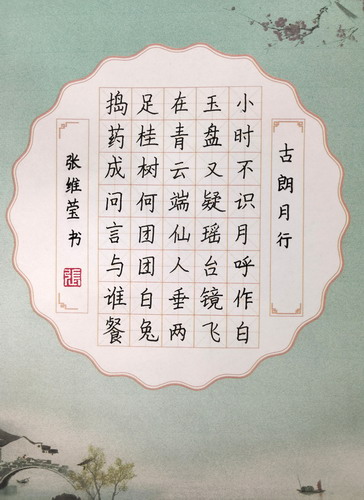 古朗月行
小时不识月呼作白
玉盘又疑瑶台镜飞
在青云端仙人垂两
足桂树何团团白兔
捣药成问言与谁餐
张维莹书
張